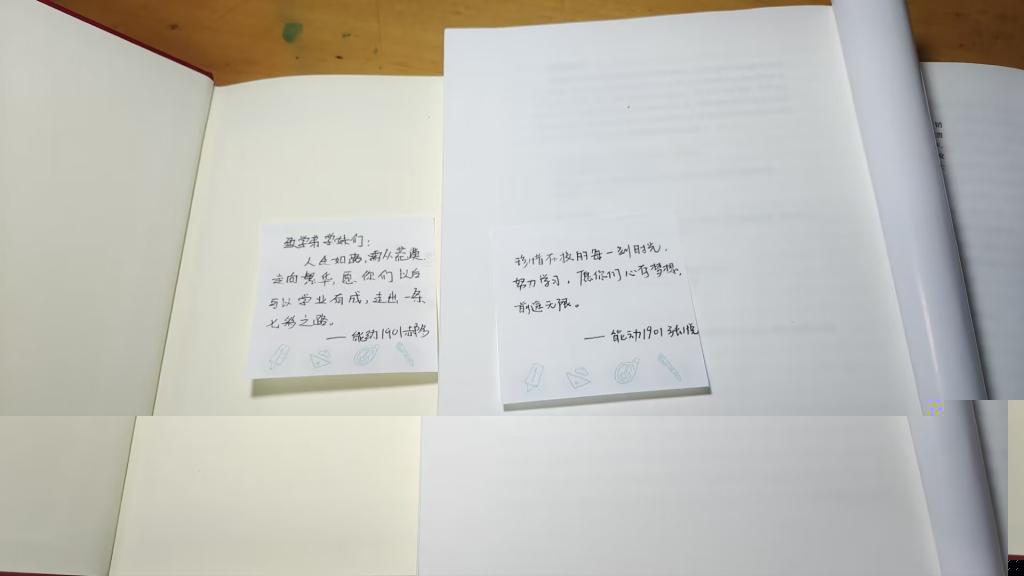 亲爱的学弟学妹们：
人生如路，需从荒凉
走向繁华，愿你们以后
可以学业有成，走出一条
七彩之路。
—— 能动1901
珍惜在校的每一刻时光，
努力学习，愿你们心有梦想，
前途无限。
—— 能动1901 张